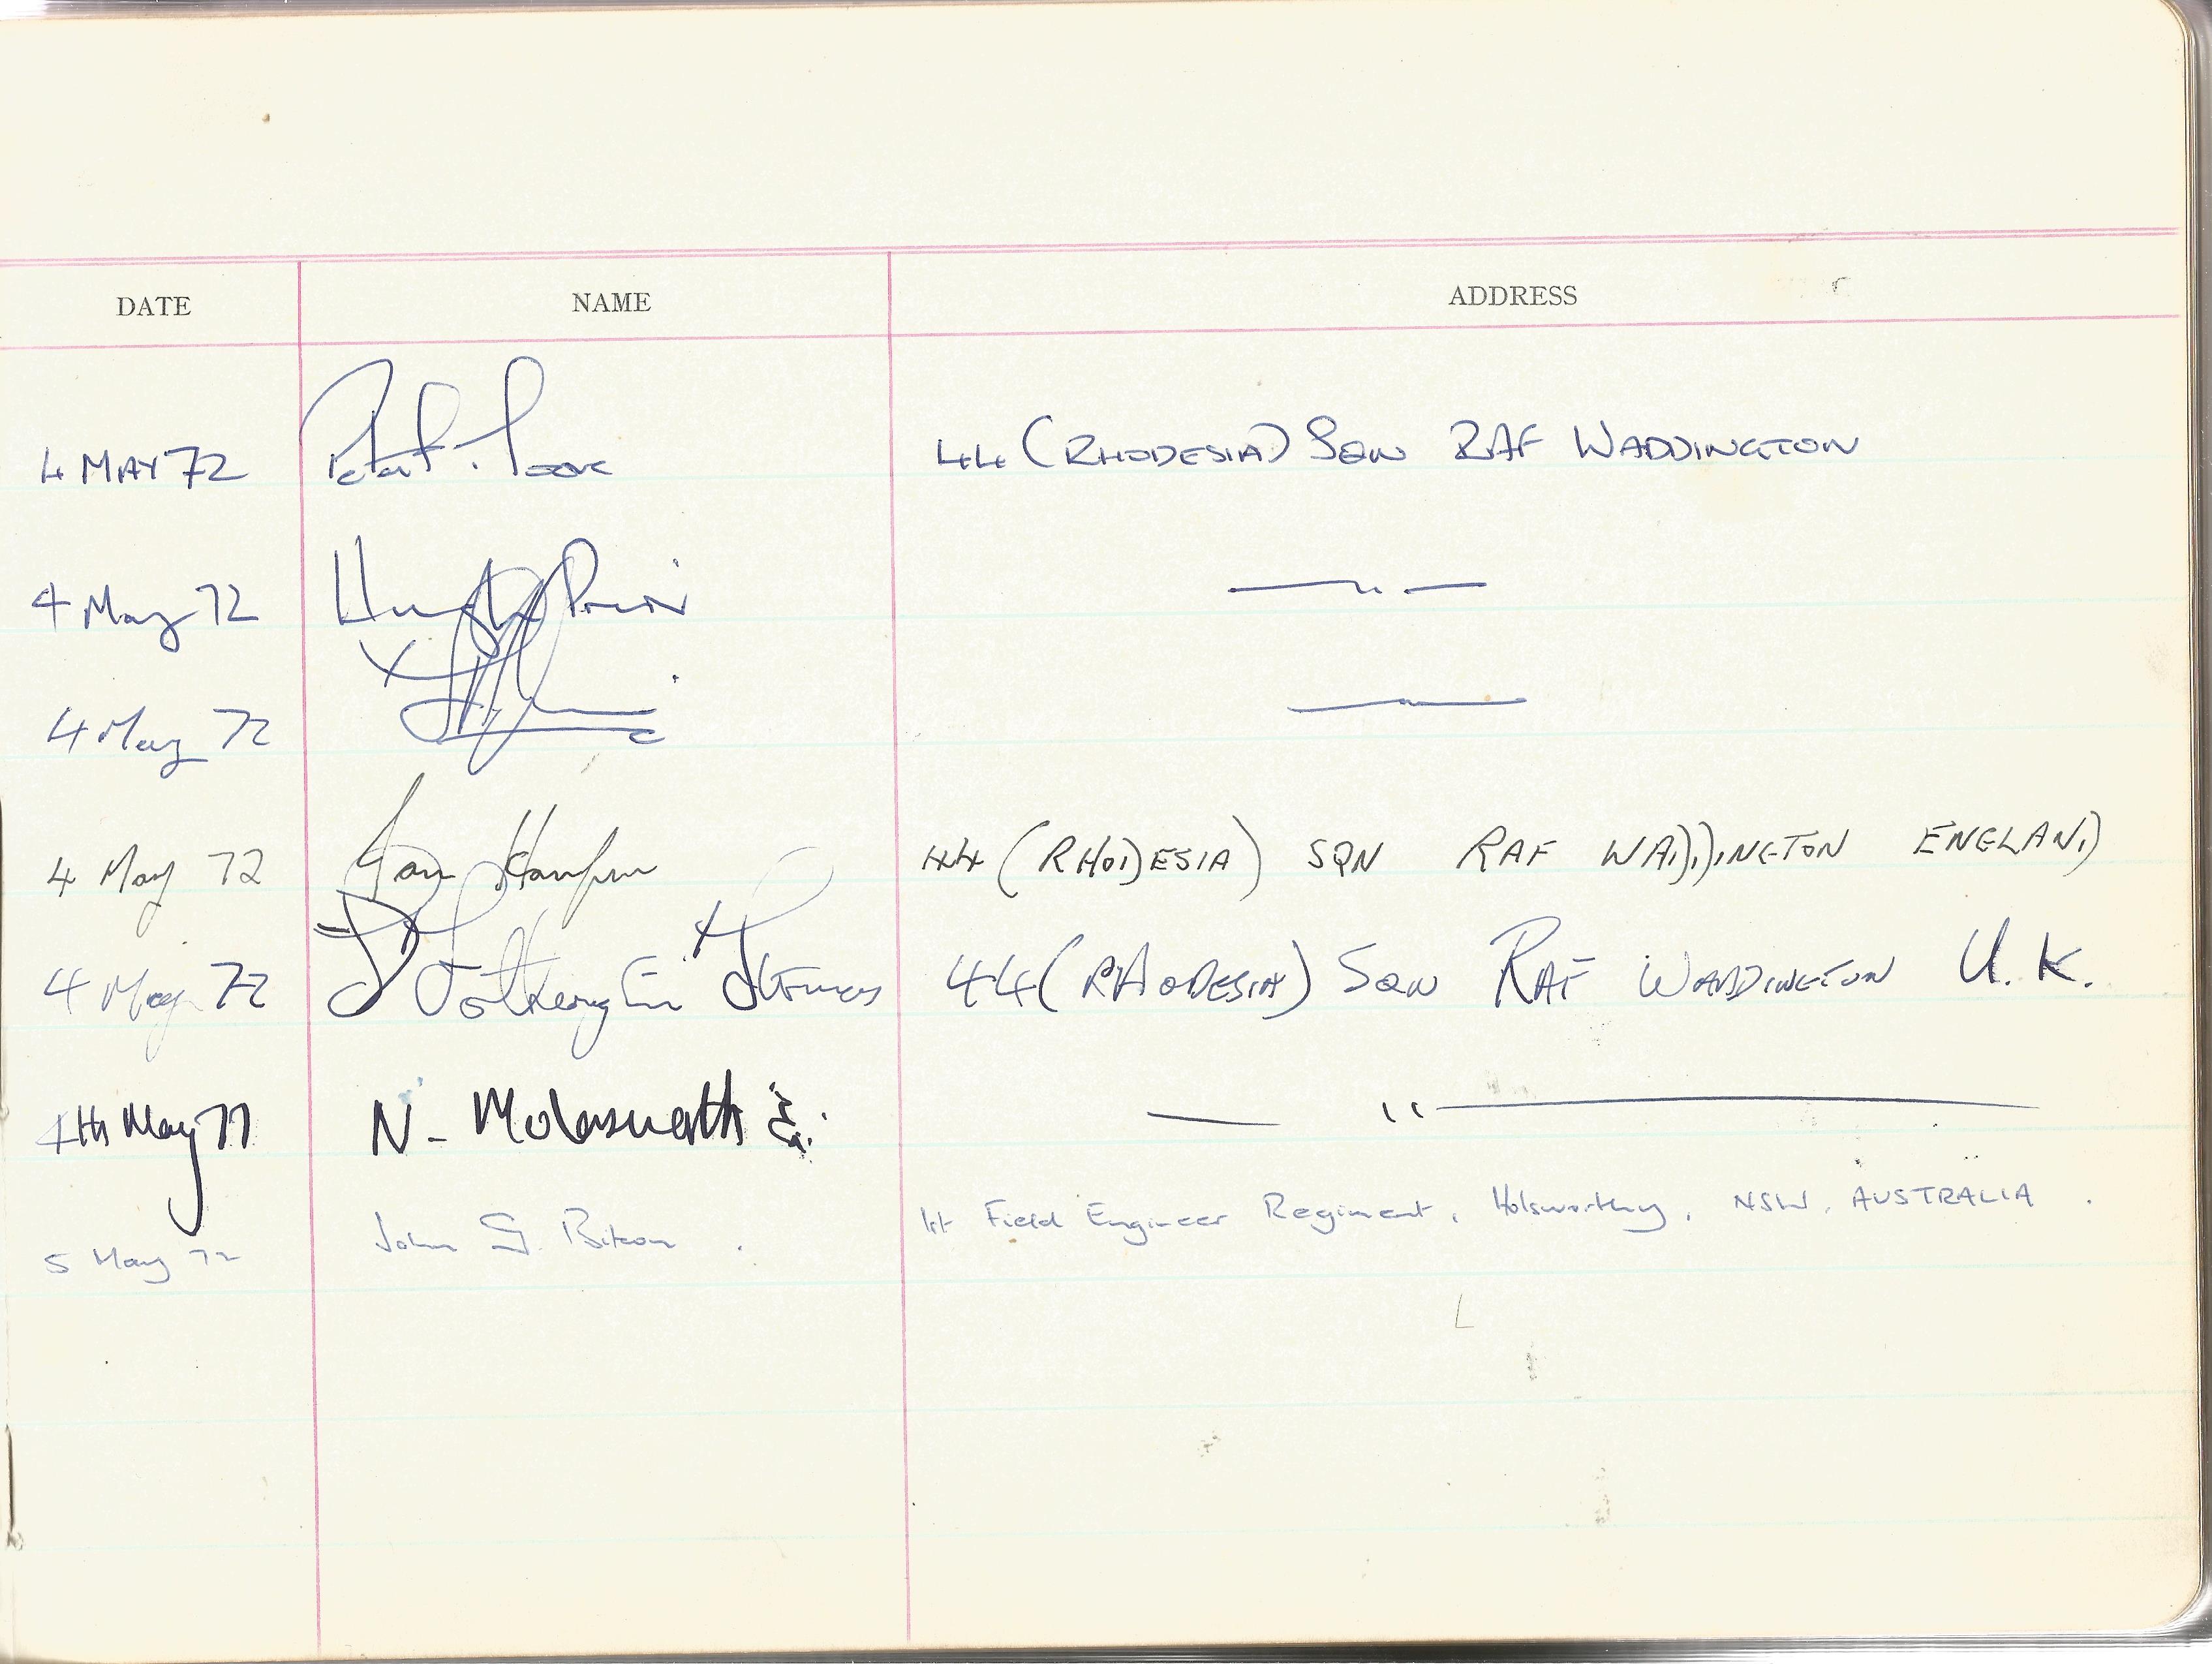 DATE NAME ADDRESS
4 MAY 72 44 (RHODESIA) SQN RAF WADDINGTON
4 May 72 Hugh Prior — " —
4 May 72
4 May 72 44 (RHODESIA) SQN RAF WADDINGTON ENGLAND
4 May 72 44 (RHODESIA) SQN RAF WADDINGTON U.K.
4th May 77 N. Molesworth — " —
5 May 72 John G. 1st Field Engineer Regiment, Holsworthy, NSW, AUSTRALIA.